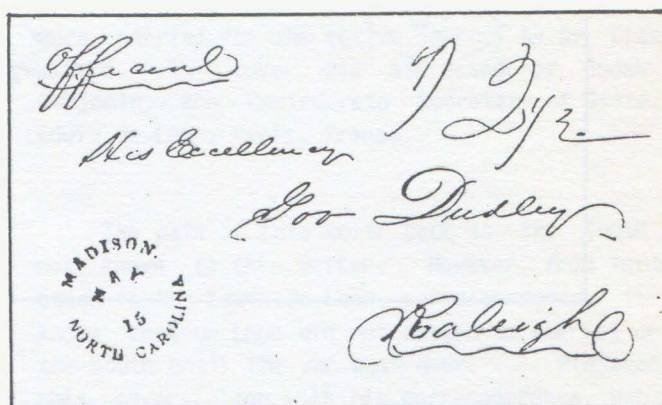 Official
His Excellency
Gov Dudley
Raleigh
MADISON
MAY
15
NORTH CAROLINA